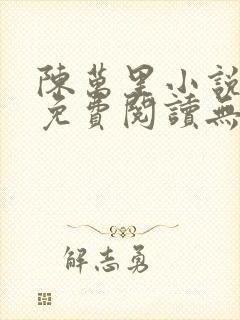 陳萬里小說
免費閱讀無
解志勇